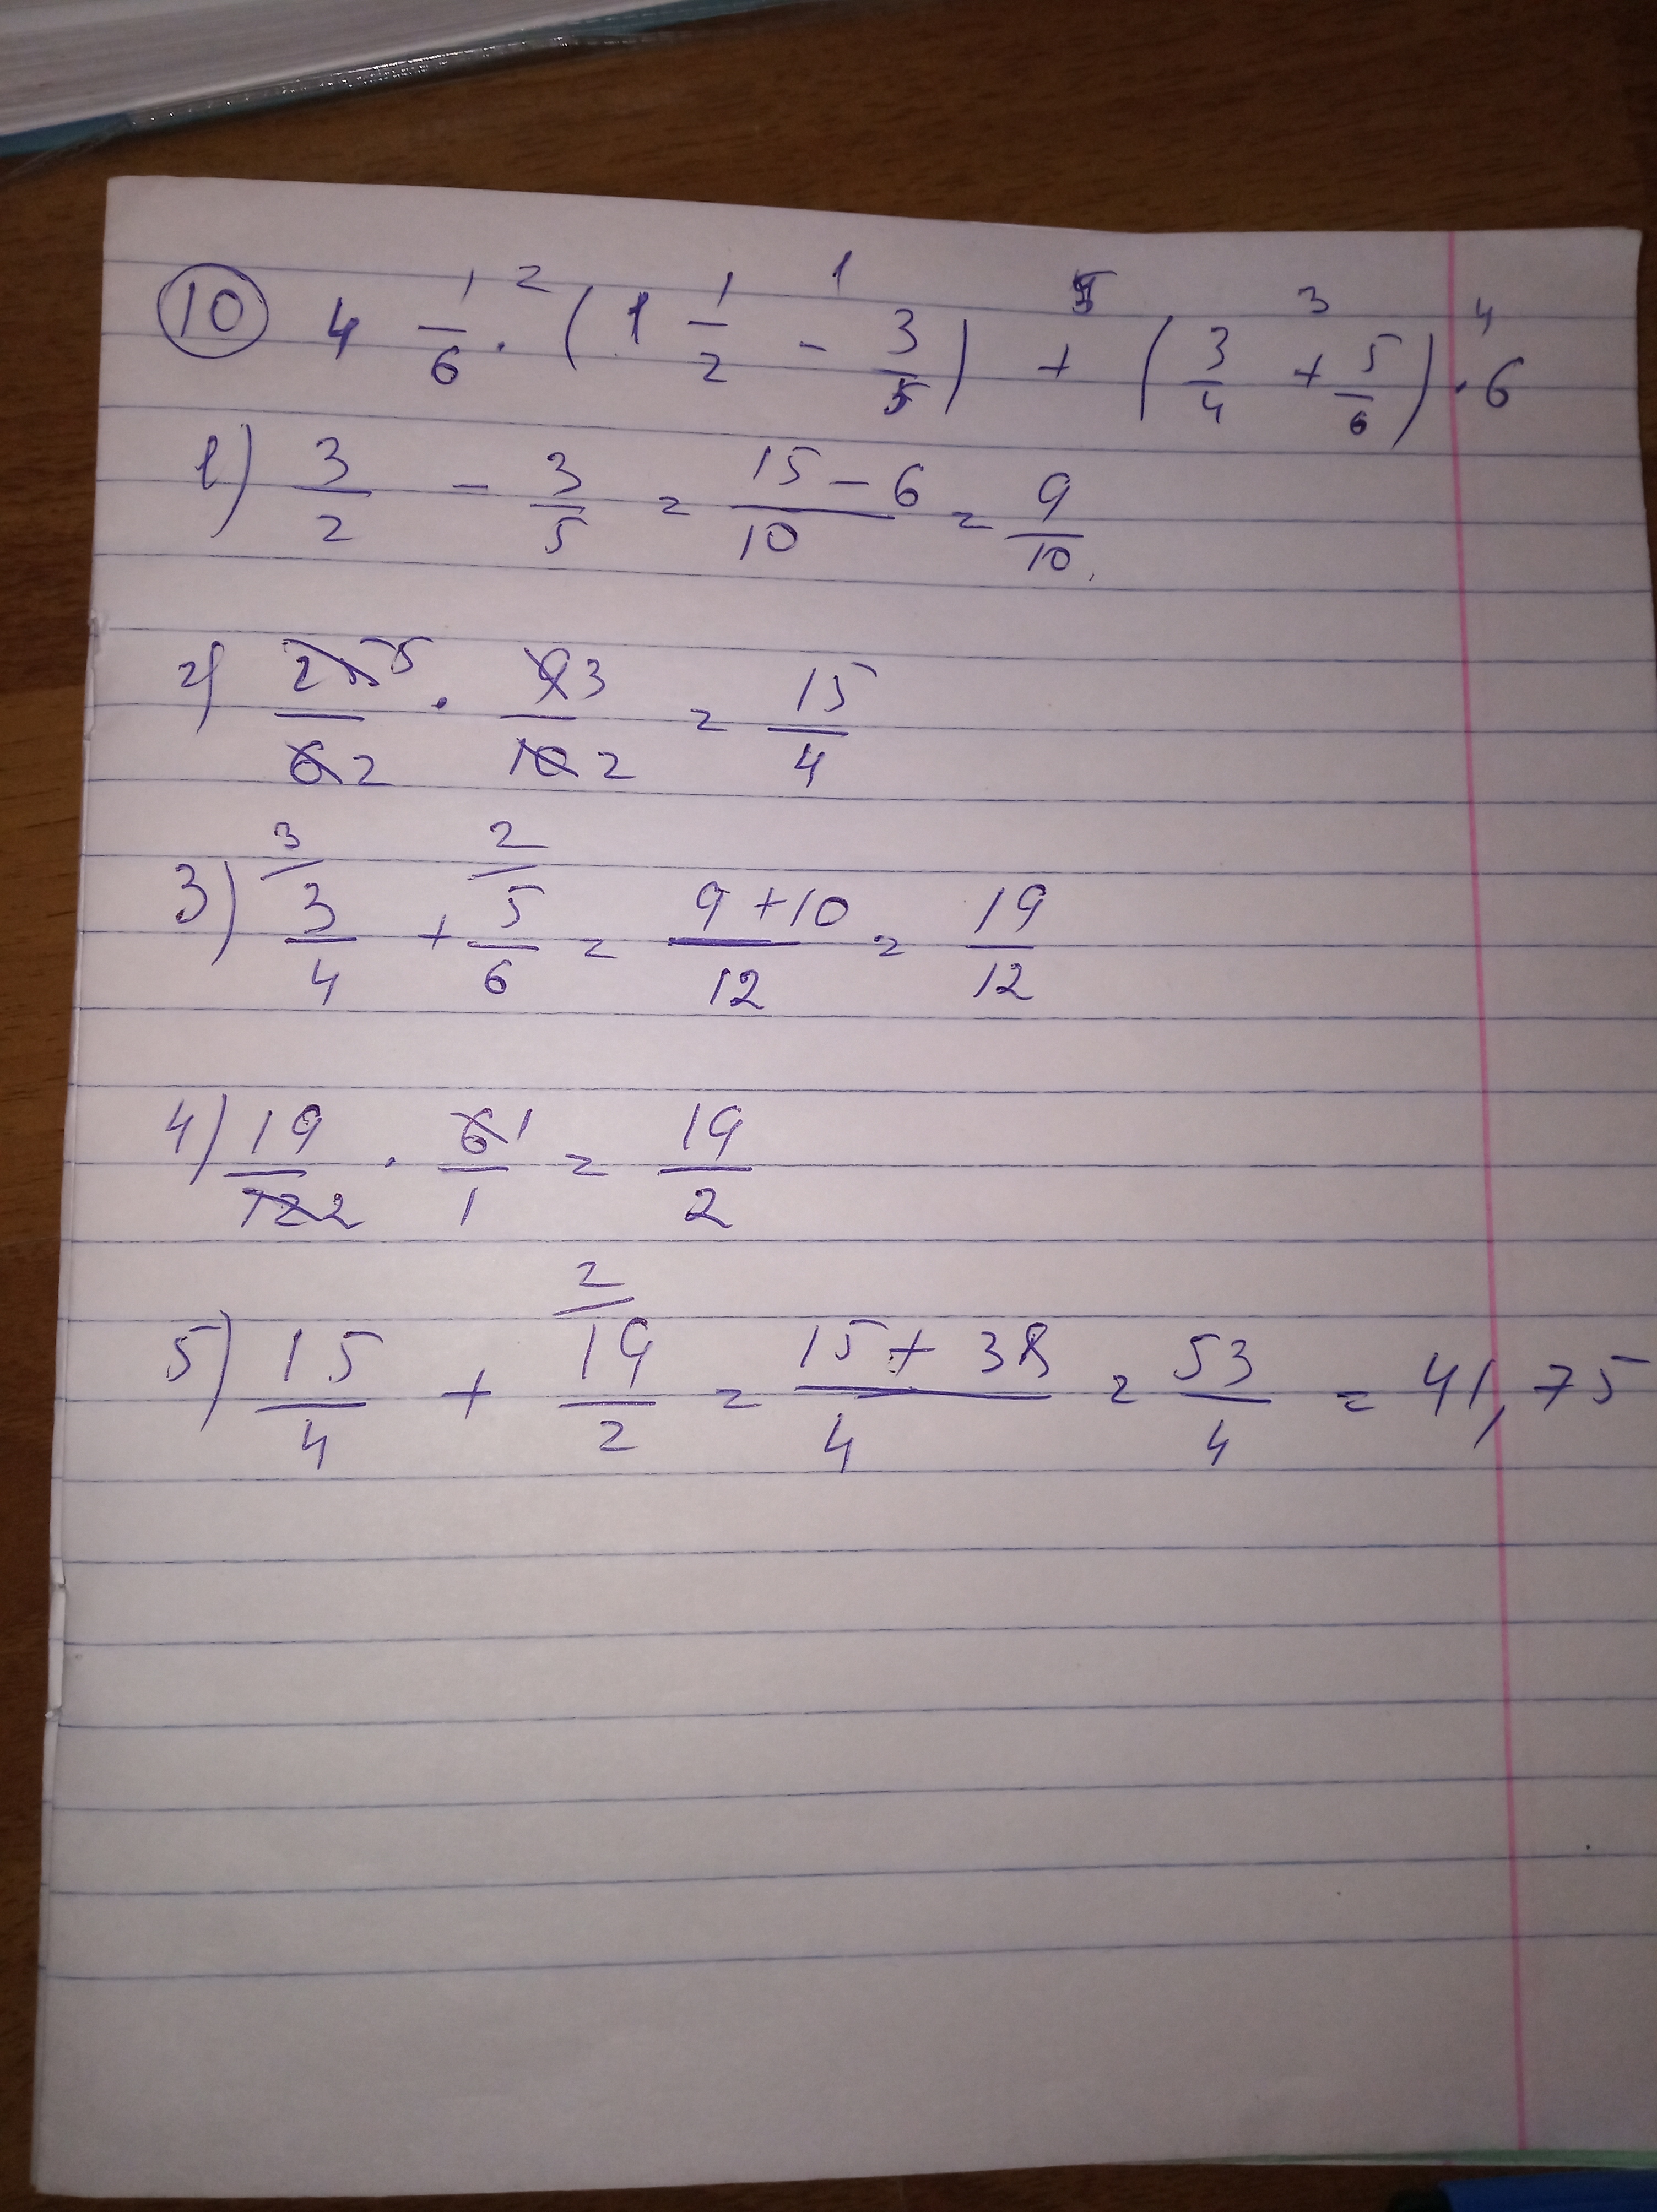 10 4 1/6 · (1 1/2 - 3/5) + (3/4 + 5/6) · 6
1) 3/2 - 3/5 = 15 - 6/10 = 9/10
2) 25 5/6 2 · 9 3/10 2 = 15/4
3) 3/4 + 5/6 = 9 + 10/12 = 19/12
4) 19/12 2 · 6 1/1 = 19/2
5) 15/4 + 19/2 = 15 + 38/4 = 53/4 = 41,75